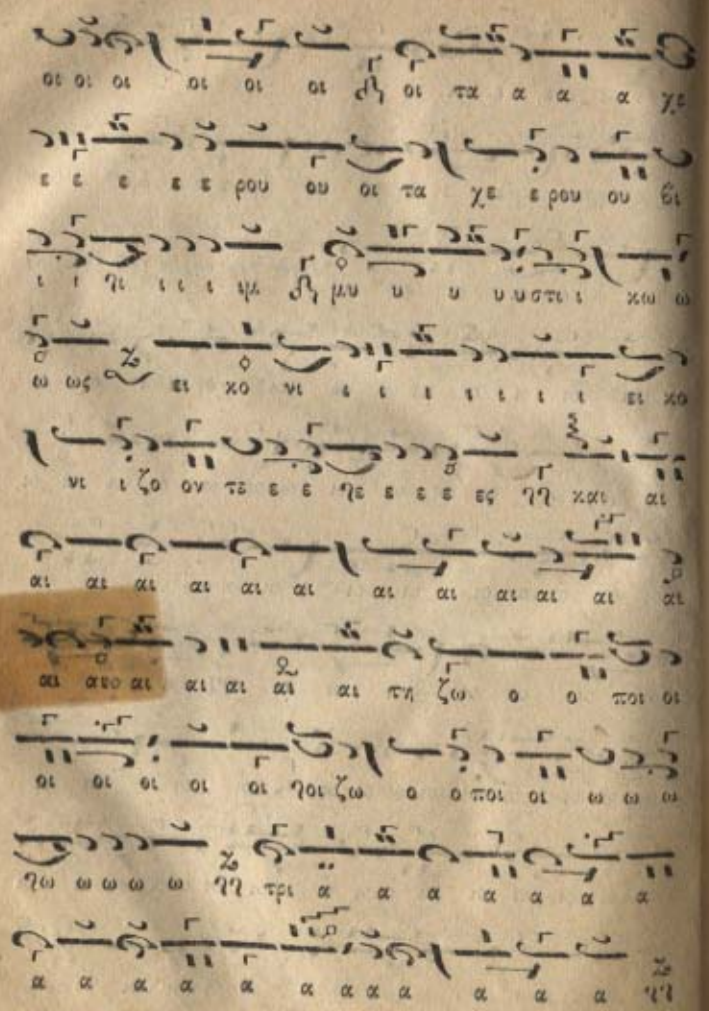 οι οι οι οι οι οι οι τα α α α χε
ε ε ε ε ε ρου ου οι τα χε ε ρου ου βι
ι ι χι ι ι ι ιμ μυ υ υ υ υ στι ι κω ω
ω ως ει κο νι ι ι ι ι ι ι ι ει κο
νι ι ζο ον τε ε ε χε ε ε ε ες και αι
αι αι αι αι αι αι αι αι αι αι αι αι
αι αι αι αι αι αι τη ζω ο ο ποι οι
οι οι οι οι οι χοι ζω ο ο ποι οι ω ω ω
χω ω ω ω ω τρι α α α α α α α
α α α α α α α α α α α α